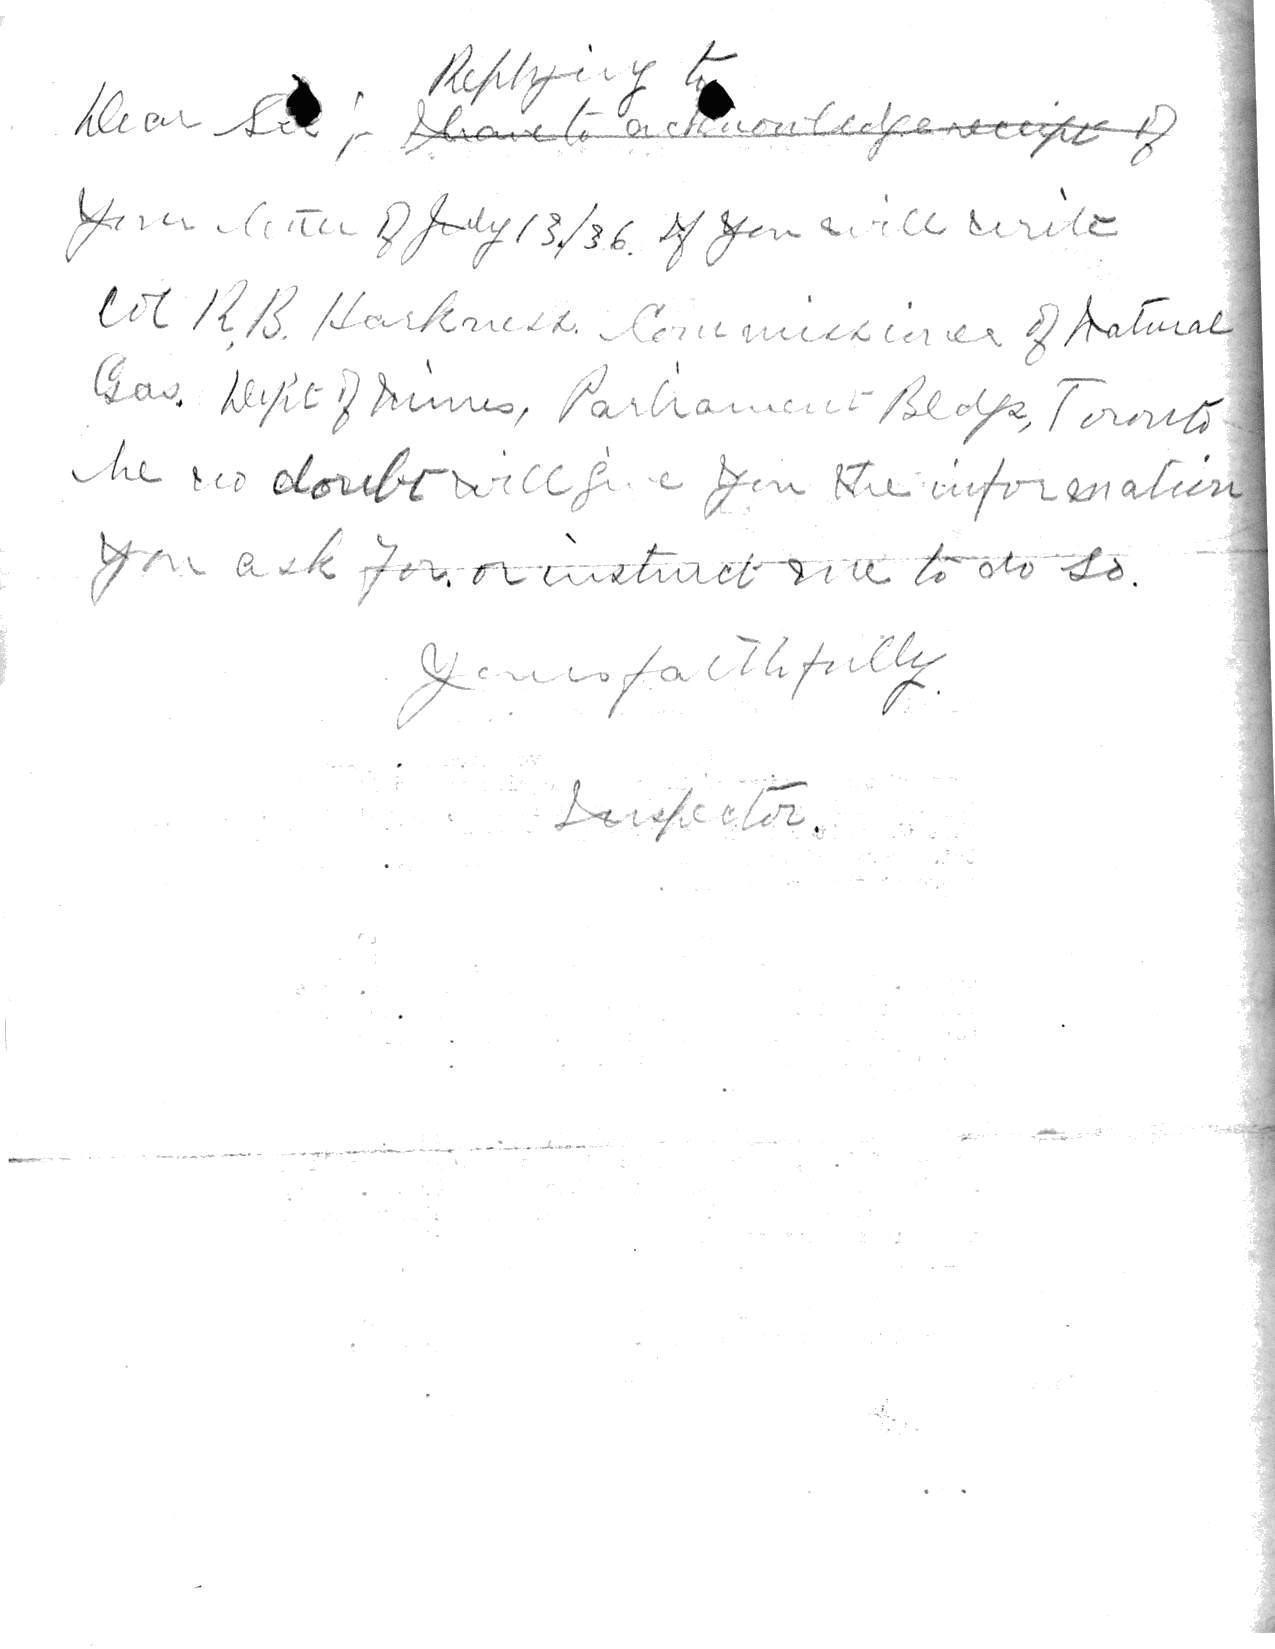 Replying to
Dear Sir ;- I have to acknowledge receipt of
Your letter of July 13/36. If you will write
Col R.B. Harkness. Commissioner of Natural
Gas. Dept of Mines, Parliament Bldgs, Toronto
he no doubt will give you the information
you ask for. or instruct me to do so.
Yours faithfully.
Inspector.